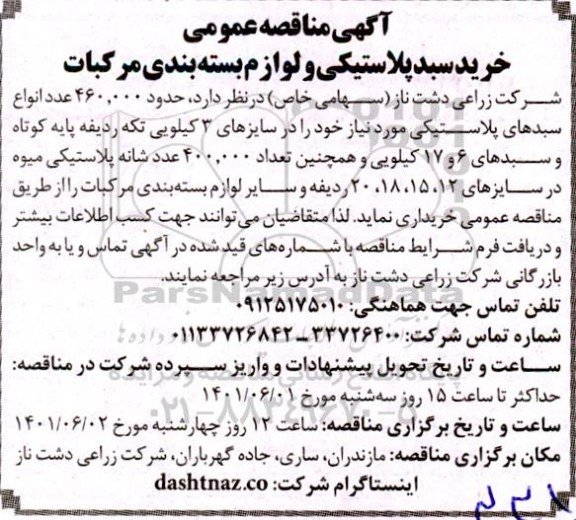 آگهی مناقصه عمومی
خرید سبد پلاستیکی و لوازم بسته‌بندی مرکبات
شرکت زراعی دشت ناز (سهامی خاص) در نظر دارد، حدود ۴۶۰,۰۰۰ عدد انواع
سبدهای پلاستیکی مورد نیاز خود را در سایزهای ۳ کیلویی تکه ردیفه پایه کوتاه
و سبدهای ۶ و ۱۷ کیلویی و همچنین تعداد ۴۰۰,۰۰۰ عدد شانه پلاستیکی میوه
در سایزهای ۱۲، ۱۵، ۱۸، ۲۰ ردیفه و سایر لوازم بسته‌بندی مرکبات را از طریق
مناقصه عمومی خریداری نماید. لذا متقاضیان می‌توانند جهت کسب اطلاعات بیشتر
و دریافت فرم شرایط مناقصه با شماره‌های قید شده در آگهی تماس و یا به واحد
بازرگانی شرکت زراعی دشت ناز به آدرس زیر مراجعه نمایند.
ParsNamadData
تلفن تماس جهت هماهنگی: ۰۹۱۲۵۱۷۵۰۱۰
شماره تماس شرکت: ۳۳۷۲۶۴۰۰ــ۰۱۱۳۳۷۲۶۸۴۲
ساعت و تاریخ تحویل پیشنهادات و واریز سپرده شرکت در مناقصه:
پایگاه اطلاع رسانی مناقصه و مزایده
حداکثر تا ساعت ۱۵ روز سه‌شنبه مورخ ۱۴۰۱/۰۶/۰۱
۰۲۱-۸۸۳۴۹۶۷۰-۵
ساعت و تاریخ برگزاری مناقصه: ساعت ۱۲ روز چهارشنبه مورخ ۱۴۰۱/۰۶/۰۲
مکان برگزاری مناقصه: مازندران، ساری، جاده گهرباران، شرکت زراعی دشت ناز
اینستاگرام شرکت: dashtnaz.co